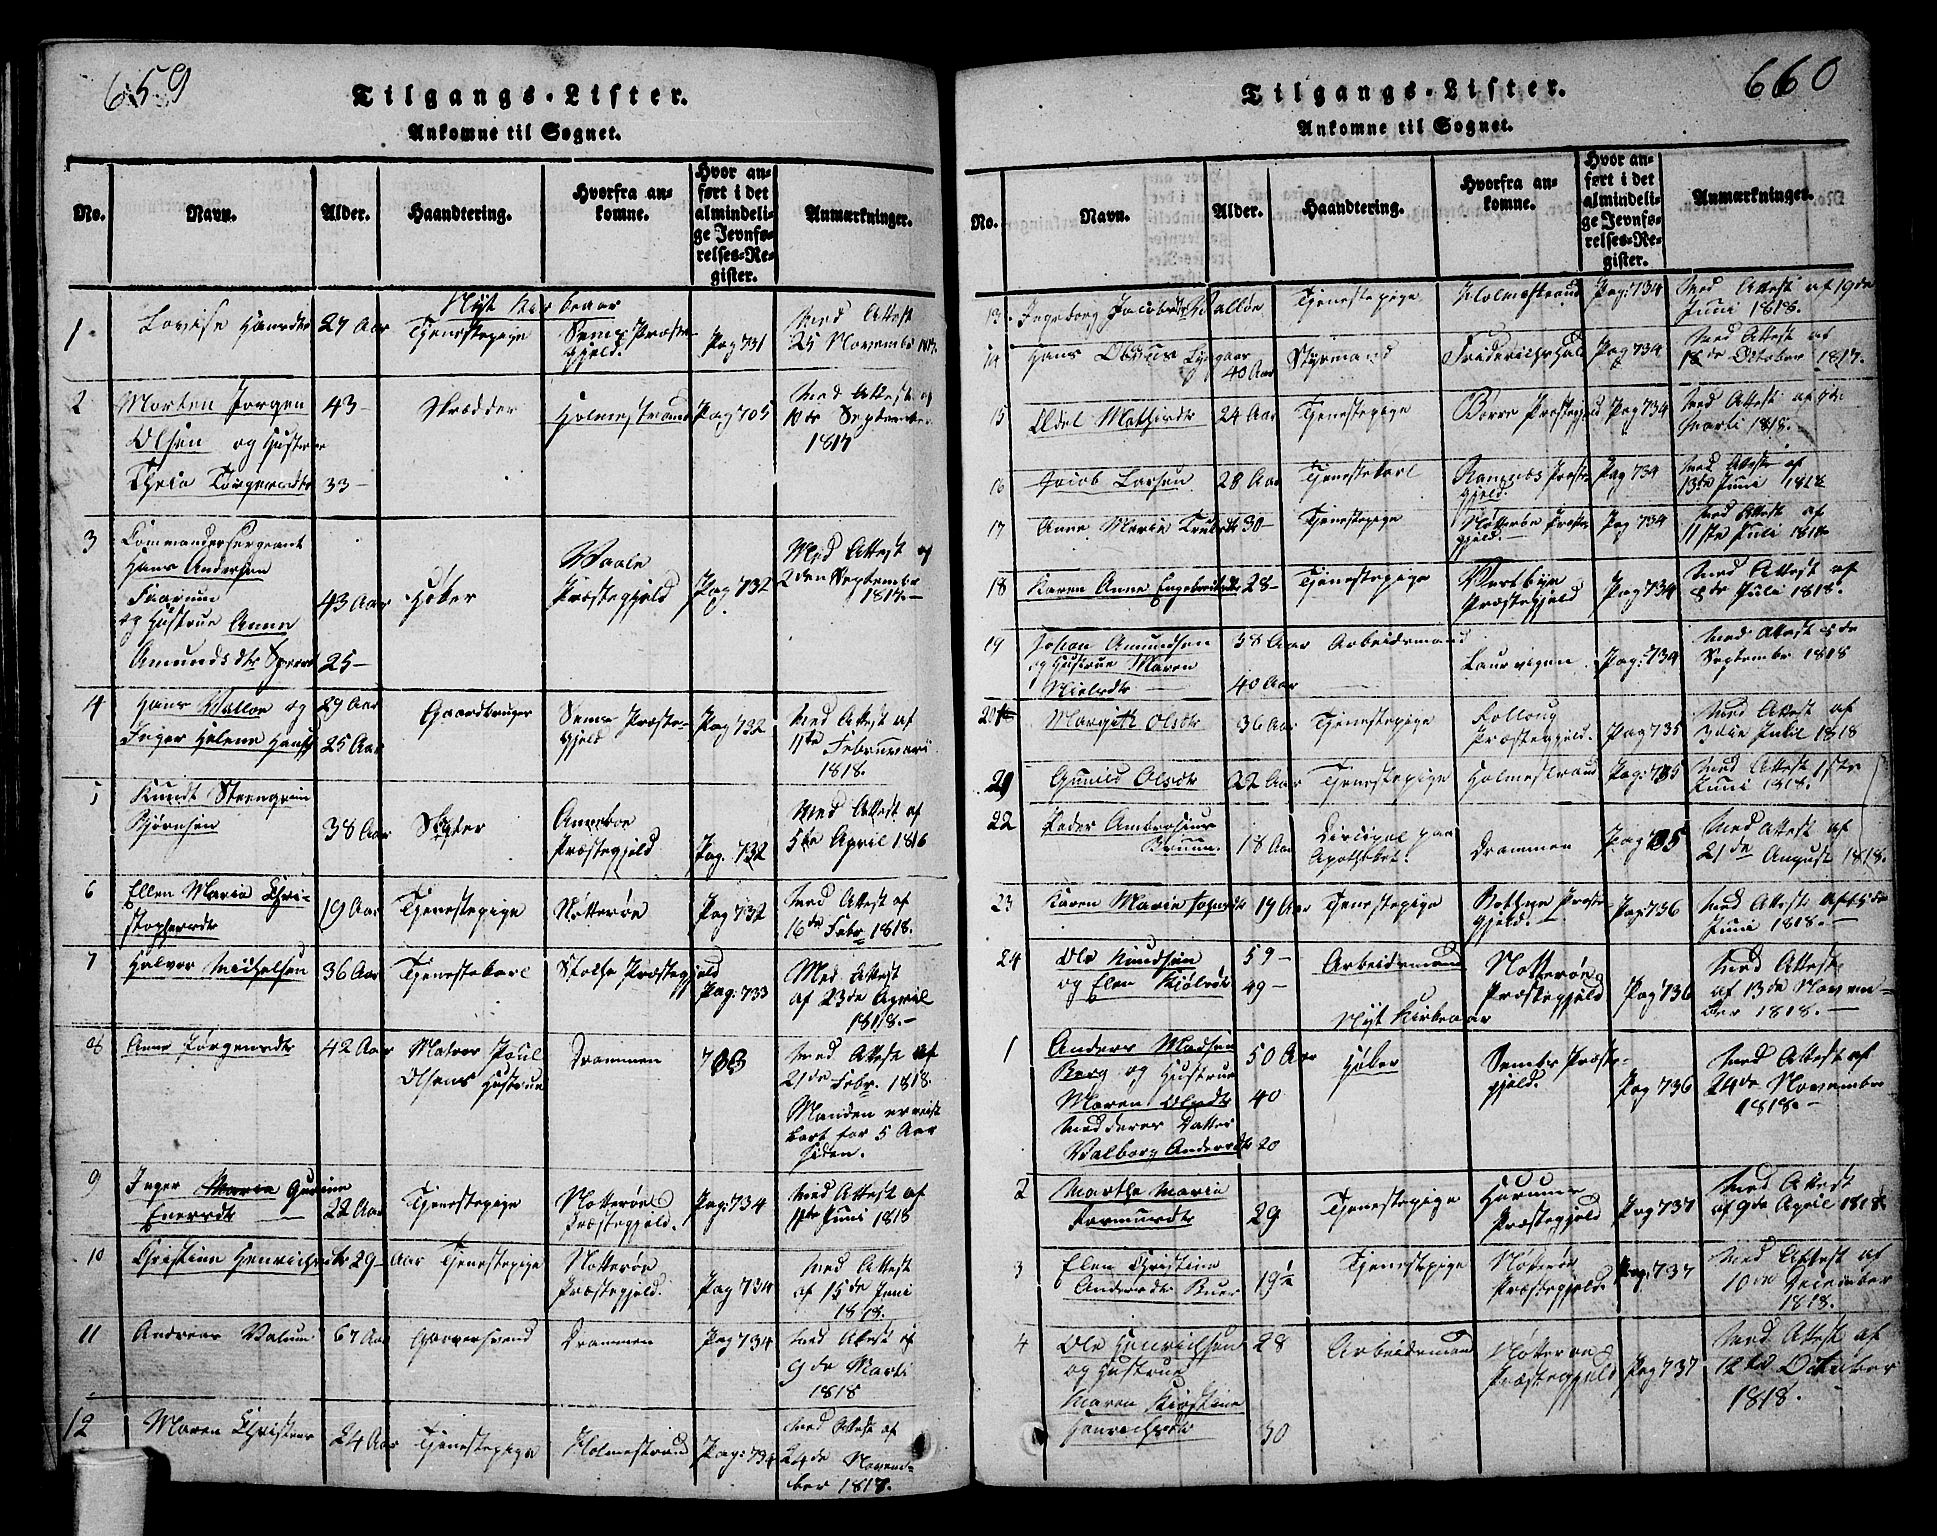 659
Tilgangs-Lister.
Ankomne til Sognet.
No. Navn. Alder. Haandtering. Hvorfra ankomne. Hvor anført i det almindelige Jevnførelses-Register. Anmærkninger.
Nyt Kirkeaar
1 Lovise Hansdtr 27 Aar Tjenestepige Sems Præstegjeld. Pag 731 Med Attest 25 Novembr 1817.
2 Morten Jørgen 43 — Skrædder Holmestrand Pag 705 Med Attest af
Olsen og Hustrue 10de September
1817
Torgersdtr 33 —
3 Commandersergeant
Hans Andersen Vaale Med Attest af
43 Aar Høker Præstegjeld Pag 732 2den September
og Hustrue Anne 1817. —
Amundsdtr 25 —
4 Hans Walløe og 29 Aar Gaardbruger Sems Præstegjeld Pag 732 Med Attest af
Inger Helene Hansd 25 Aar 11te Februari
1818.
5 Knudt Steengrim
Bjørnsen 38 Aar Præstegjeld Pag. 732 Med Attest af
5te April 1816
6 Ellen Maria Christophersdtr 19 Aar Tjenestepige Nøtterøe Pag 732 Med Attest af
16de Febr. 1818.
7 Halvor Michelsen 36 Aar Tjenestekarl Præstegjeld Pag: 733 Med Attest
af 23de April
1818. —
8 Anne Jørgensdtr 42 Aar Poul Drammen 733 Med Attest af
Olsens Hustrue 21de Febr. 1818.
Manden er reist
bort for 5 Aar
siden.
9 Inger Maria Gurine
Eversdtr 22 Aar Tjenestepige Nøtterøe Pag: 734 Med Attest af
Præstegjeld. 11te Juni 1818
10 Christine Henrichsdtr 29 Aar Tjenestepige Nøtterøe Med Attest
Præstegjeld. Pag 734 af 15de Juni
1818.
11 Andreas 67 Aar Garversvend Drammen Pag 734 Med Attest af
9de Marti
1818
12 Maren Christens 24 Aar Tjenestepige Holmestrand Pag: 734 Med Attest af
24de November 1817.
660
Tilgangs-Lister.
Ankomne til Sognet.
No. Navn. Alder. Haandtering. Hvorfra ankomne. Hvor anført i det almindelige Jevnførelses-Register. Anmærkninger.
13 Ingeborg Jacobsdtr Walløe Tjenestepige Holmestrand Pag: 734 Med Attest af 19de
Juni 1818.
14 Hans Lyggaar 40 Aar Styrmand Friderichshald Pag 734 Med Attest af
18de October 1817.
15 Eldel Mathisdtr 24 Aar Tjenestepige Borre Præstegjeld Pag 734 Med Attest af
Marti 1818.
16 Jacob Larsen 28 Aar Tjenestekarl Ramnæs Præstegjeld. Pag 734 Med Attest af
13de Juni 1818
17 Anne Marie Truelsdtr 30 — Tjenestepige Nøtterøe Præstegjeld. — Pag 734 Med Attest af
11te Juli 1818
18 Karen Anne Engebretsdtr 28 — Tjenestepige Præstegjeld Pag 734 Med Attest af
8de Juli 1818.
19 Johan Amundsen 38 Aar Arbeidsmand Laurvigen Pag: 734 Med Attest 5de
og Hustrue Maren September 1818
Nielsdtr — 40 Aar
20 Margith Olsdtr 36 Aar Tjenestepige Follong Med Attest af
Præstegjeld. Pag 735 3die Julil 1818
21 Gunild Olsdtr 22 Aar Tjenestepige Holmestrand Pag: 735 Med Attest 1ste
Juni 1818.
22 Peder Ambrosius
Bruun 18 Aar Discipel paa
Apotheket. Drammen Pag 735 Med Attest af
21de August 1818.
23 Karen Marie 19 Aar Tjenestepige Præstegjeld. Pag: 736 Med Attest af 15de
Juni 1818. —
24 Ole Knudsen 59 — Arbeidsmand Nøtterøe Med Attest
og Elen 49 — Præstegjeld Pag 736 af 13de November 1818. —
Nyt Kirkeaar
1 Anders Madsen 50 Aar Høker Sems Præstegjeld. Med Attest af
Berg og Hustrue Pag 736 24de Novembr
Maren Olsdtr 40 1818. —
med deres Datter
Valborg Andersdtr 20
2 Marthe Maria 29 Tjenestepige Præstegjeld Pag 737 Med Attest
af 9de April 1818
3 Elen Christine
Andersdtr 19½ Tjenestepige Nøtterøe
Præstegjeld. Pag: 737 Med Attest af
10de December
1818.
4 Ole Henrichsen 28 Arbeidsmand Nøtterøe Med Attest af
og Hustrue Præstegjeld Pag 737 12te October
Maren Kirstine 1818.
Henrichsdtr 30